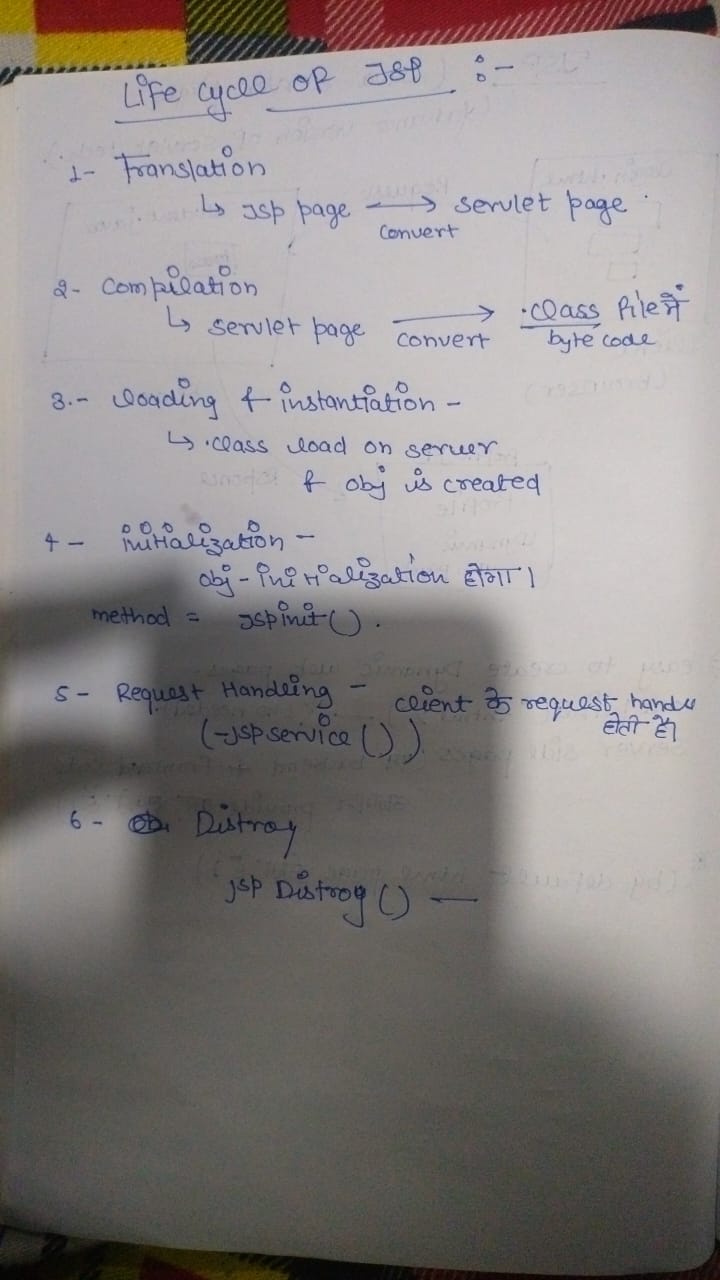 Life cycle of JSP :-
1- Translation
↳ JSP page → servlet page
convert
2- Compilation
↳ servlet page → .class file में
convert byte code
3.- Loading & instantiation -
↳ .class load on server
& obj is created
4- initialization -
obj - initialization होगा।
method = jspinit().
5- Request Handling - client के request handle
(-jspservice()) होती है।
6- Distroy
jsp Distroy() —